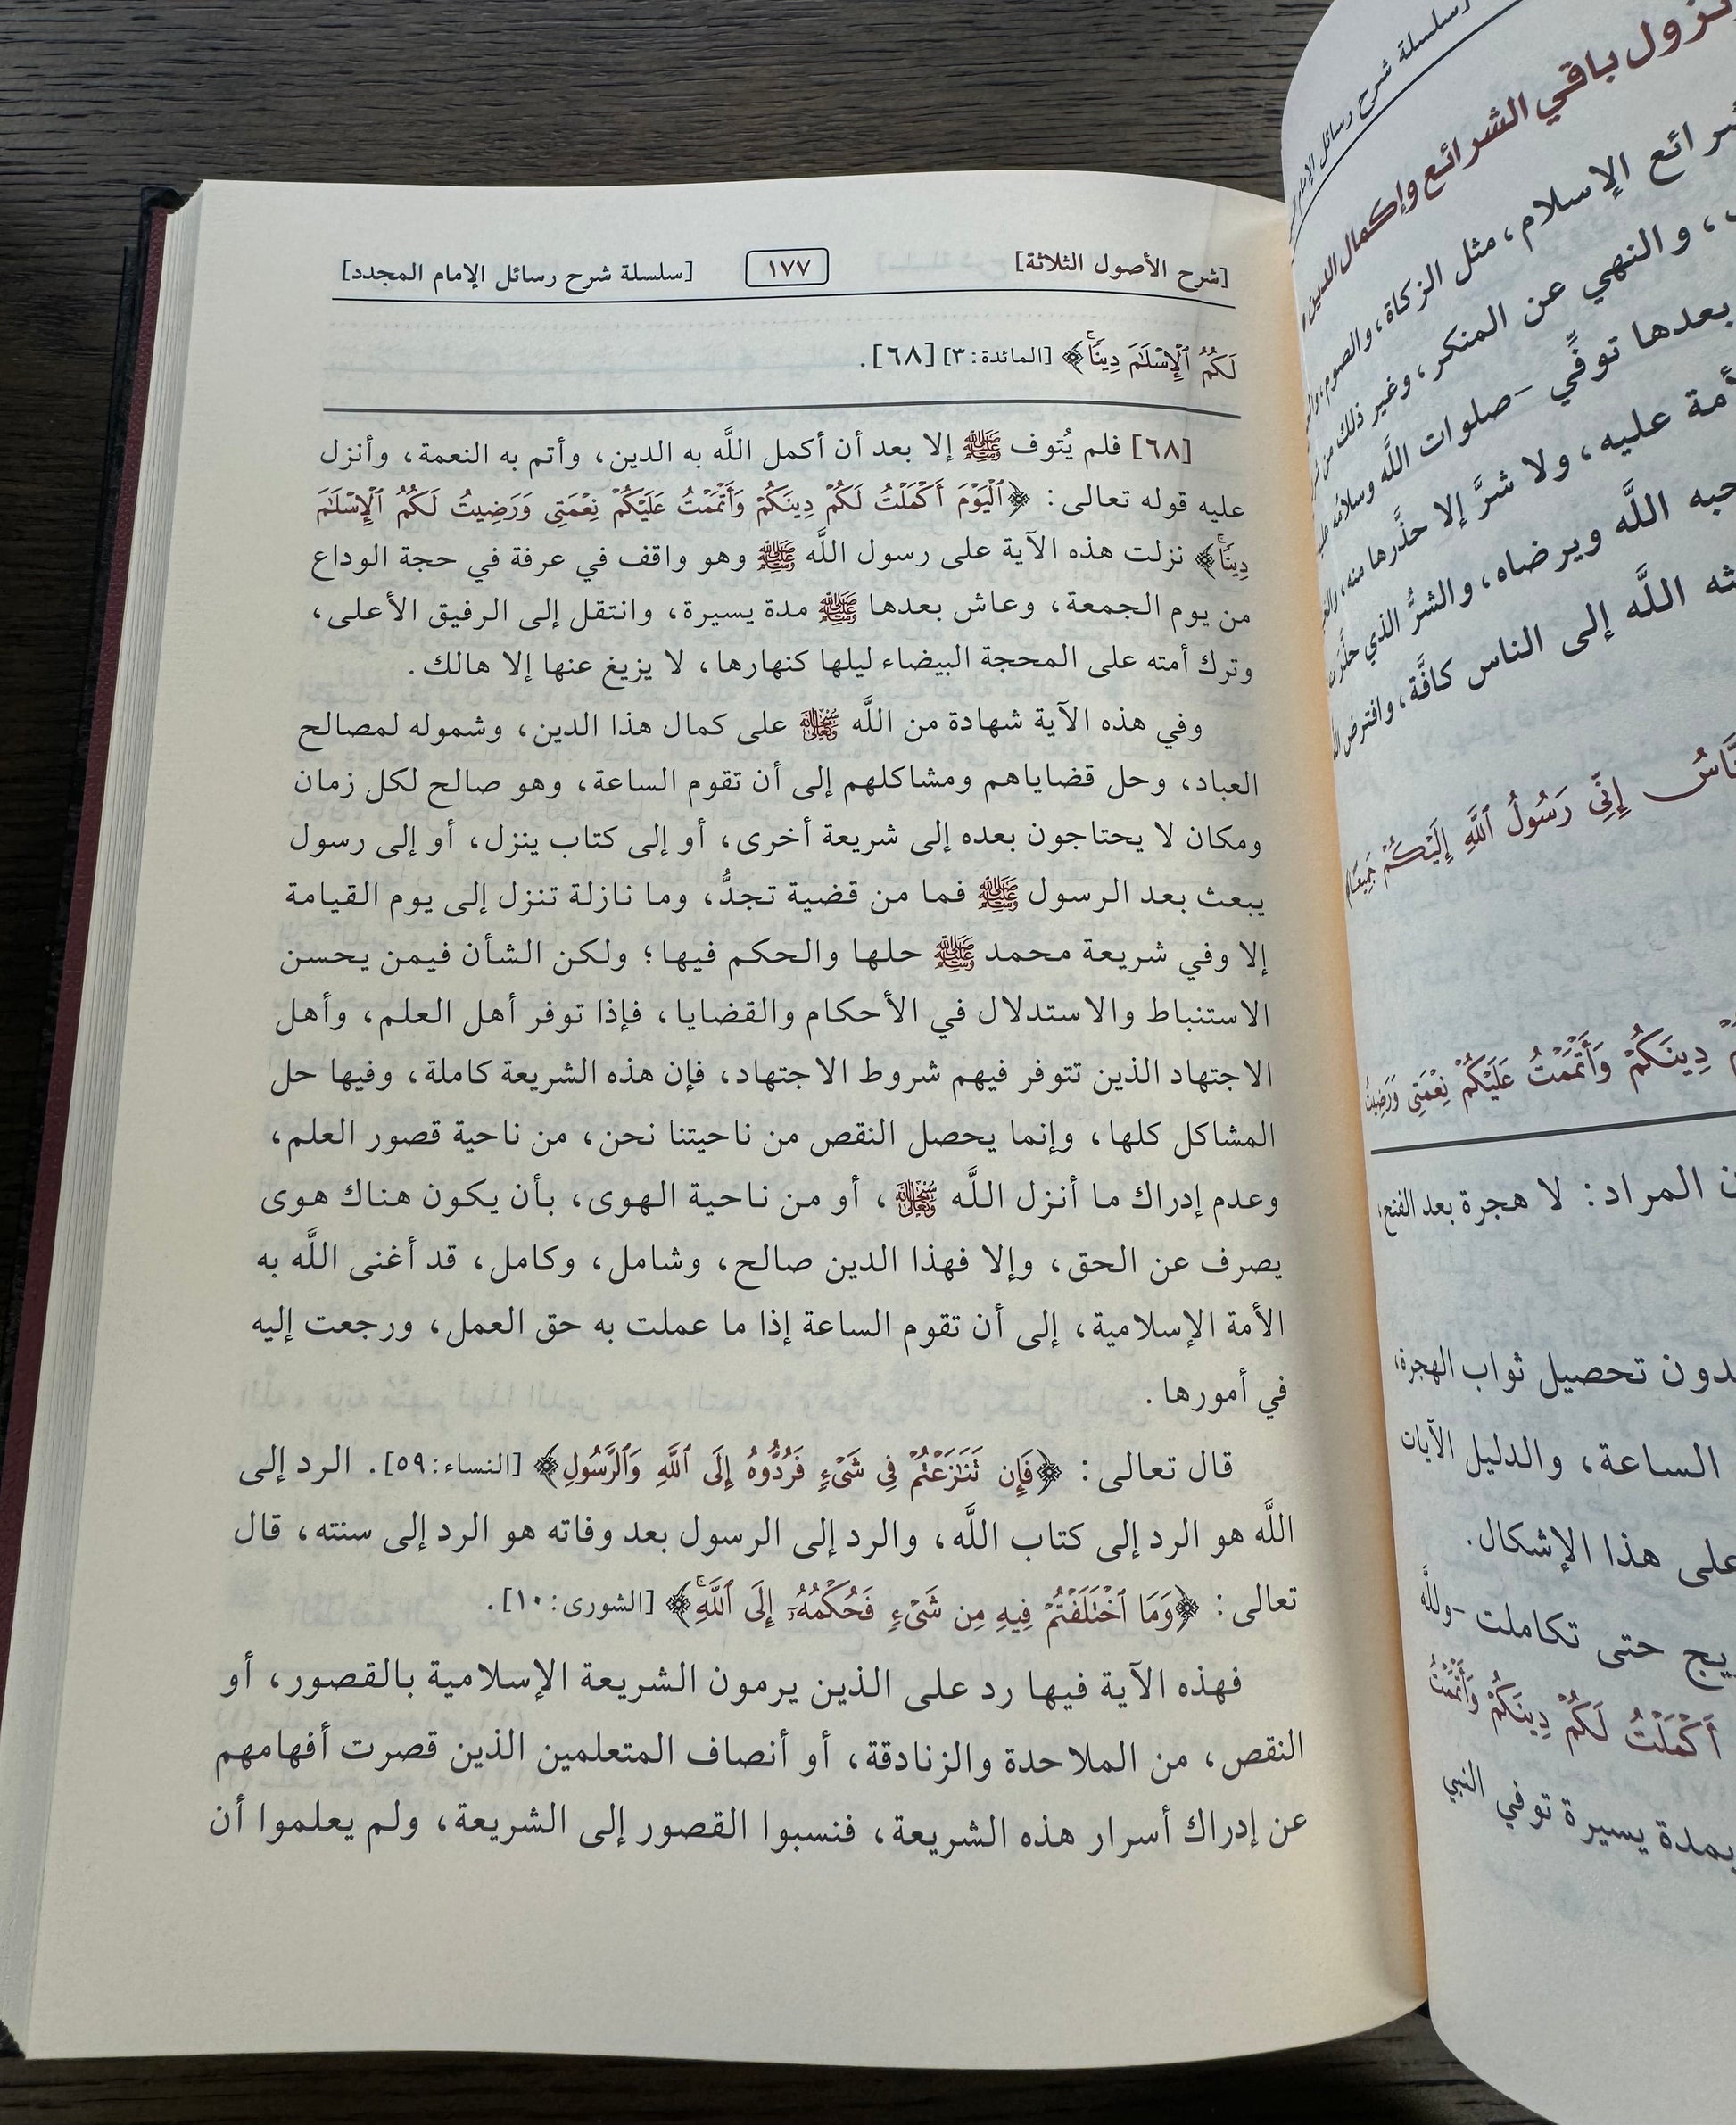 [شرح الأصول الثلاثة] ١٧٧ [سلسلة شرح رسائل الإمام المجدد]
لَكُمُ ٱلْإِسْلَٰمَ دِينًاۚ﴾ [المائدة: ٣] [٦٨].
[٦٨] فلم يُتوف ﷺ إلا بعد أن أكمل اللَّه به الدين، وأتم به النعمة، وأنزل
عليه قوله تعالى: ﴿ٱلْيَوْمَ أَكْمَلْتُ لَكُمْ دِينَكُمْ وَأَتْمَمْتُ عَلَيْكُمْ نِعْمَتِى وَرَضِيتُ لَكُمُ ٱلْإِسْلَٰمَ
دِينًاۚ﴾ نزلت هذه الآية على رسول اللَّه ﷺ وهو واقف في عرفة في حجة الوداع
من يوم الجمعة، وعاش بعدها ﷺ مدة يسيرة، وانتقل إلى الرفيق الأعلى،
وترك أمته على المحجة البيضاء ليلها كنهارها، لا يزيغ عنها إلا هالك.
وفي هذه الآية شهادة من اللَّه سبحانه وتعالى على كمال هذا الدين، وشموله لمصالح
العباد، وحل قضاياهم ومشاكلهم إلى أن تقوم الساعة، وهو صالح لكل زمان
ومكان لا يحتاجون بعده إلى شريعة أخرى، أو إلى كتاب ينزل، أو إلى رسول
يبعث بعد الرسول ﷺ فما من قضية تجدُّ، وما نازلة تنزل إلى يوم القيامة
إلا وفي شريعة محمد ﷺ حلها والحكم فيها؛ ولكن الشأن فيمن يحسن
الاستنباط والاستدلال في الأحكام والقضايا، فإذا توفر أهل العلم، وأهل
الاجتهاد الذين تتوفر فيهم شروط الاجتهاد، فإن هذه الشريعة كاملة، وفيها حل
المشاكل كلها، وإنما يحصل النقص من ناحيتنا نحن، من ناحية قصور العلم،
وعدم إدراك ما أنزل اللَّه سبحانه وتعالى، أو من ناحية الهوى، بأن يكون هناك هوى
يصرف عن الحق، وإلا فهذا الدين صالح، وشامل، وكامل، قد أغنى اللَّه به
الأمة الإسلامية، إلى أن تقوم الساعة إذا ما عملت به حق العمل، ورجعت إليه
في أمورها.
قال تعالى: ﴿فَإِن تَنَٰزَعْتُمْ فِى شَىْءٍ فَرُدُّوهُ إِلَى ٱللَّهِ وَٱلرَّسُولِ﴾ [النساء: ٥٩]. الرد إلى
اللَّه هو الرد إلى كتاب اللَّه، والرد إلى الرسول بعد وفاته هو الرد إلى سنته، قال
تعالى: ﴿وَمَا ٱخْتَلَفْتُمْ فِيهِ مِن شَىْءٍ فَحُكْمُهُۥٓ إِلَى ٱللَّهِۚ﴾ [الشورى: ١٠].
فهذه الآية فيها رد على الذين يرمون الشريعة الإسلامية بالقصور، أو
النقص، من الملاحدة والزنادقة، أو أنصاف المتعلمين الذين قصرت أفهامهم
عن إدراك أسرار هذه الشريعة، فنسبوا القصور إلى الشريعة، ولم يعلموا أن
سلسلة شرح رسائل الإمام
نزول باقي الشرائع وإكمال الدين
شرائع الإسلام، مثل الزكاة، والصوم،
، والنهي عن المنكر، وغير ذلك من
بعدها توفِّي -صلوات اللَّه وسلامُه
أمة عليه، ولا شرَّ إلا حذَّرها منه،
حبه اللَّه ويرضاه، والشرُّ الذي
اللَّه إلى الناس كافَّة، وافترض
إِنِّى رَسُولُ ٱللَّهِ إِلَيْكُمْ جَمِيعًا﴾
دِينَكُمْ وَأَتْمَمْتُ عَلَيْكُمْ نِعْمَتِى وَرَضِيتُ
المراد: لا هجرة بعد الفتح
تحصيل ثواب الهجرة،
الساعة، والدليل الآيات
على هذا الإشكال.
حتى تكاملت -وللَّه
أَكْمَلْتُ لَكُمْ دِينَكُمْ وَأَتْمَمْتُ
بمدة يسيرة توفي النبي